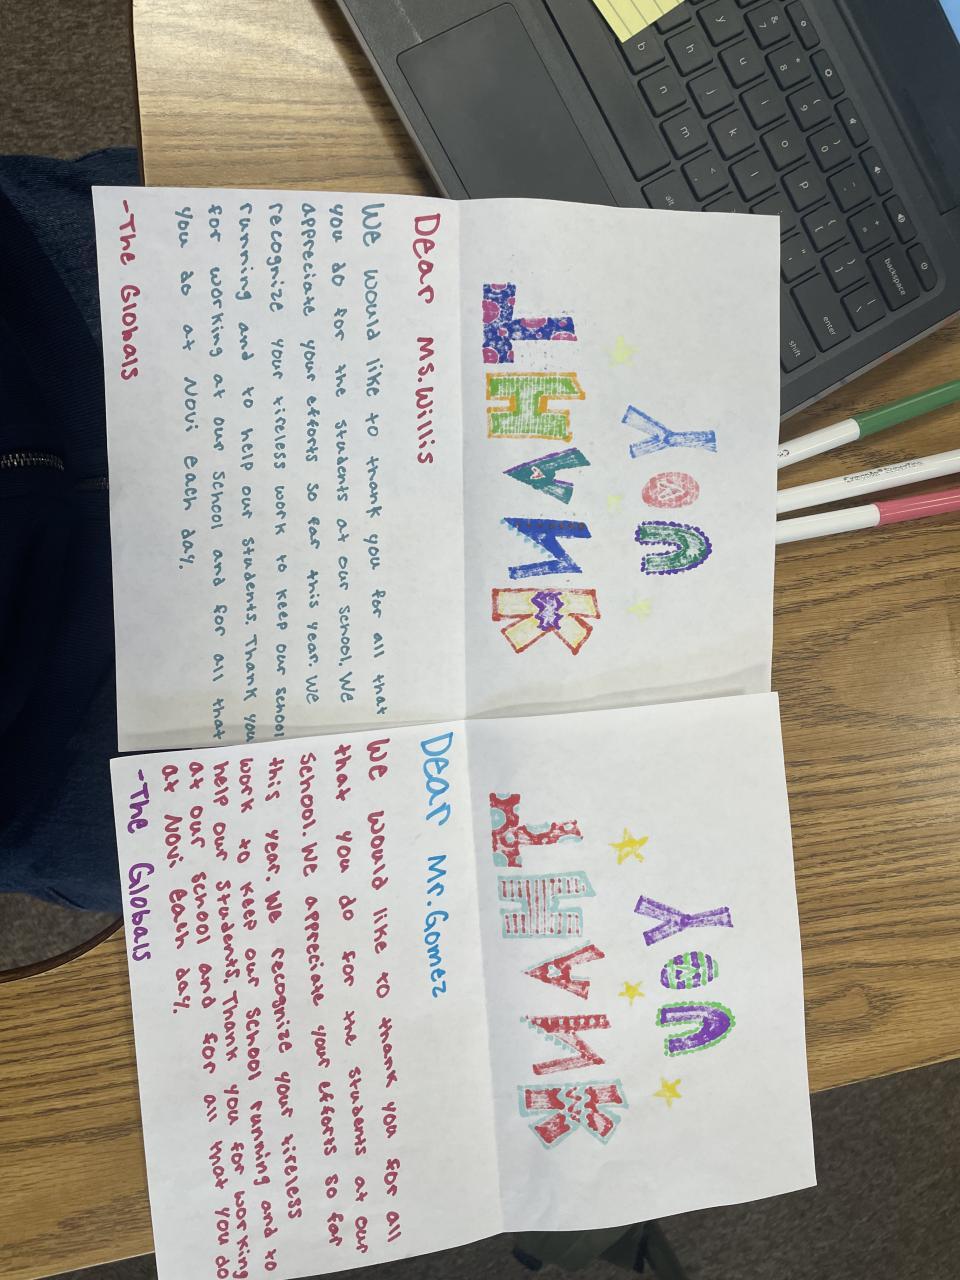 THANK
YOU
Dear Ms. Willis
We would like to thank you for all that
you do for the students at our school. We
appreciate your efforts so far this year. We
recognize your tireless work to keep our school
running and to help our students. Thank you
for working at our school and for all that
you do at Novi each day.
-The Globals
THANK
YOU
Dear Mr. Gomez
We would like to thank you for all
that you do for the students at our
school. We appreciate your efforts so far
this year. We recognize your tireless
work to keep our school running and to
help our students. Thank you for working
at our school and for all that you do
at Novi each day.
-The Globals
backspace
enter
shift
alt
y
h
u
b
n
j
i
m
k
o
l
p